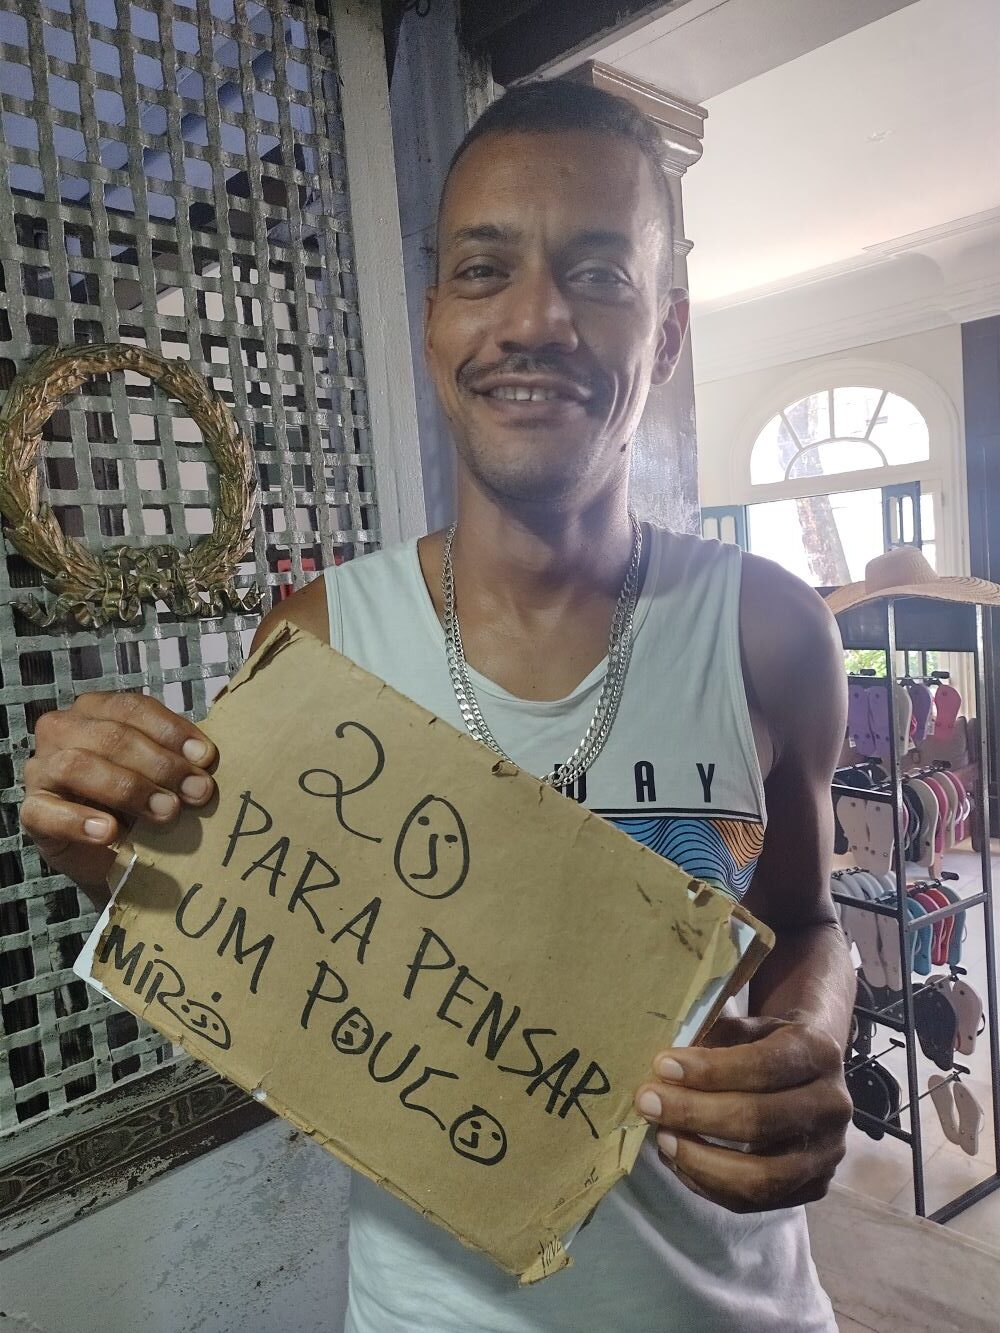 20
PARA PENSAR
UM POUCO
MIRÓ
DAY